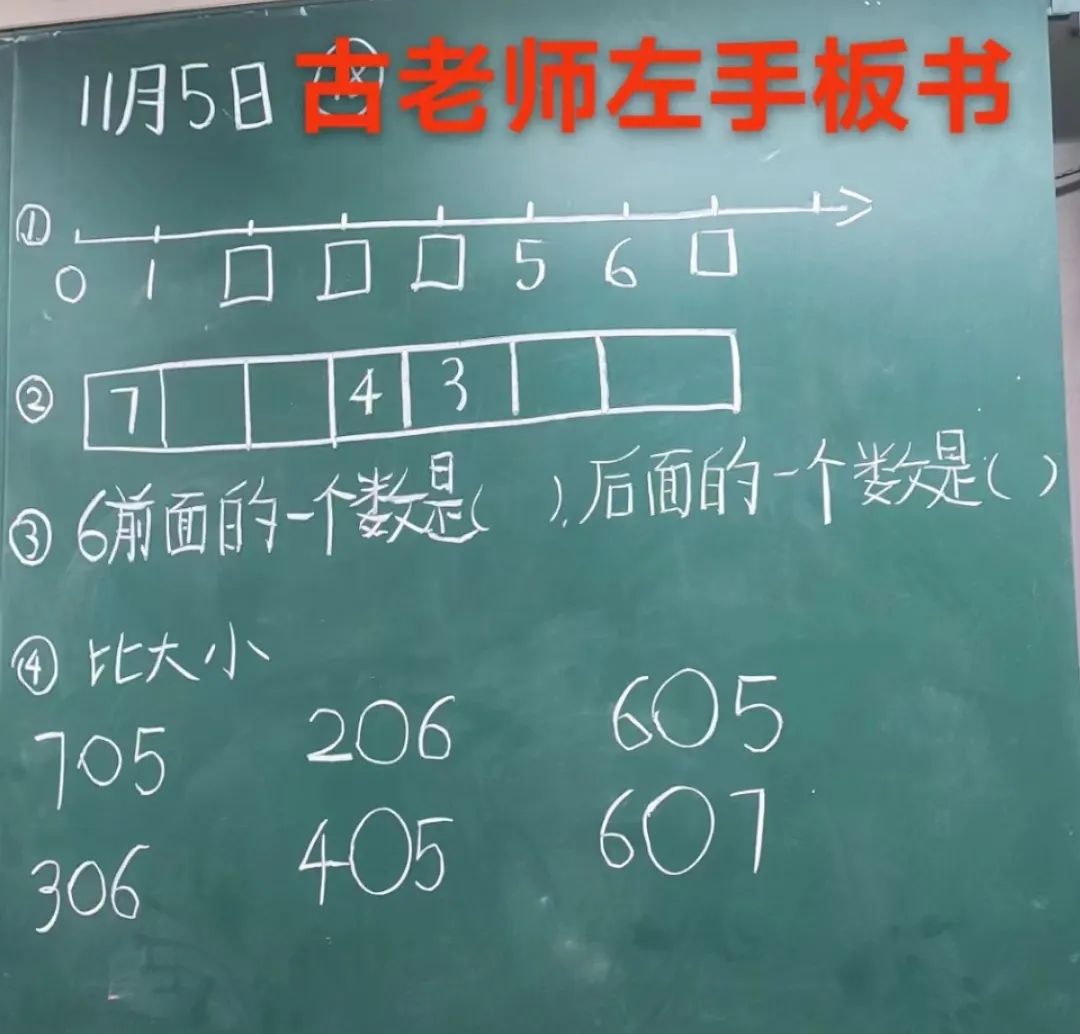 11月5日 古老师左手板书
①
0 1 □ □ □ 5 6 □
② 7 4 3
③ 6前面的一个数是( ).后面的一个数是( )
④ 比大小
7○5 2○6 6○5
3○6 4○5 6○7